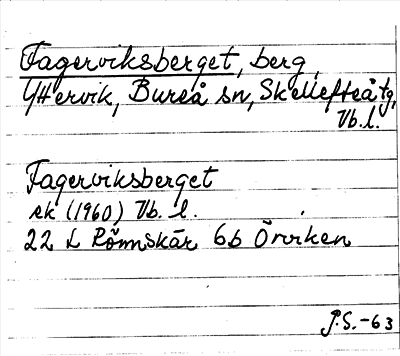 Fagerviksberget, berg,
Yttervik, Bureå sn, Skellefteå tg,
Vb. l.
Fagerviksberget
ek (1960) Vb. l.
22 L Rönnskär 6b Örviken
P.S. -63